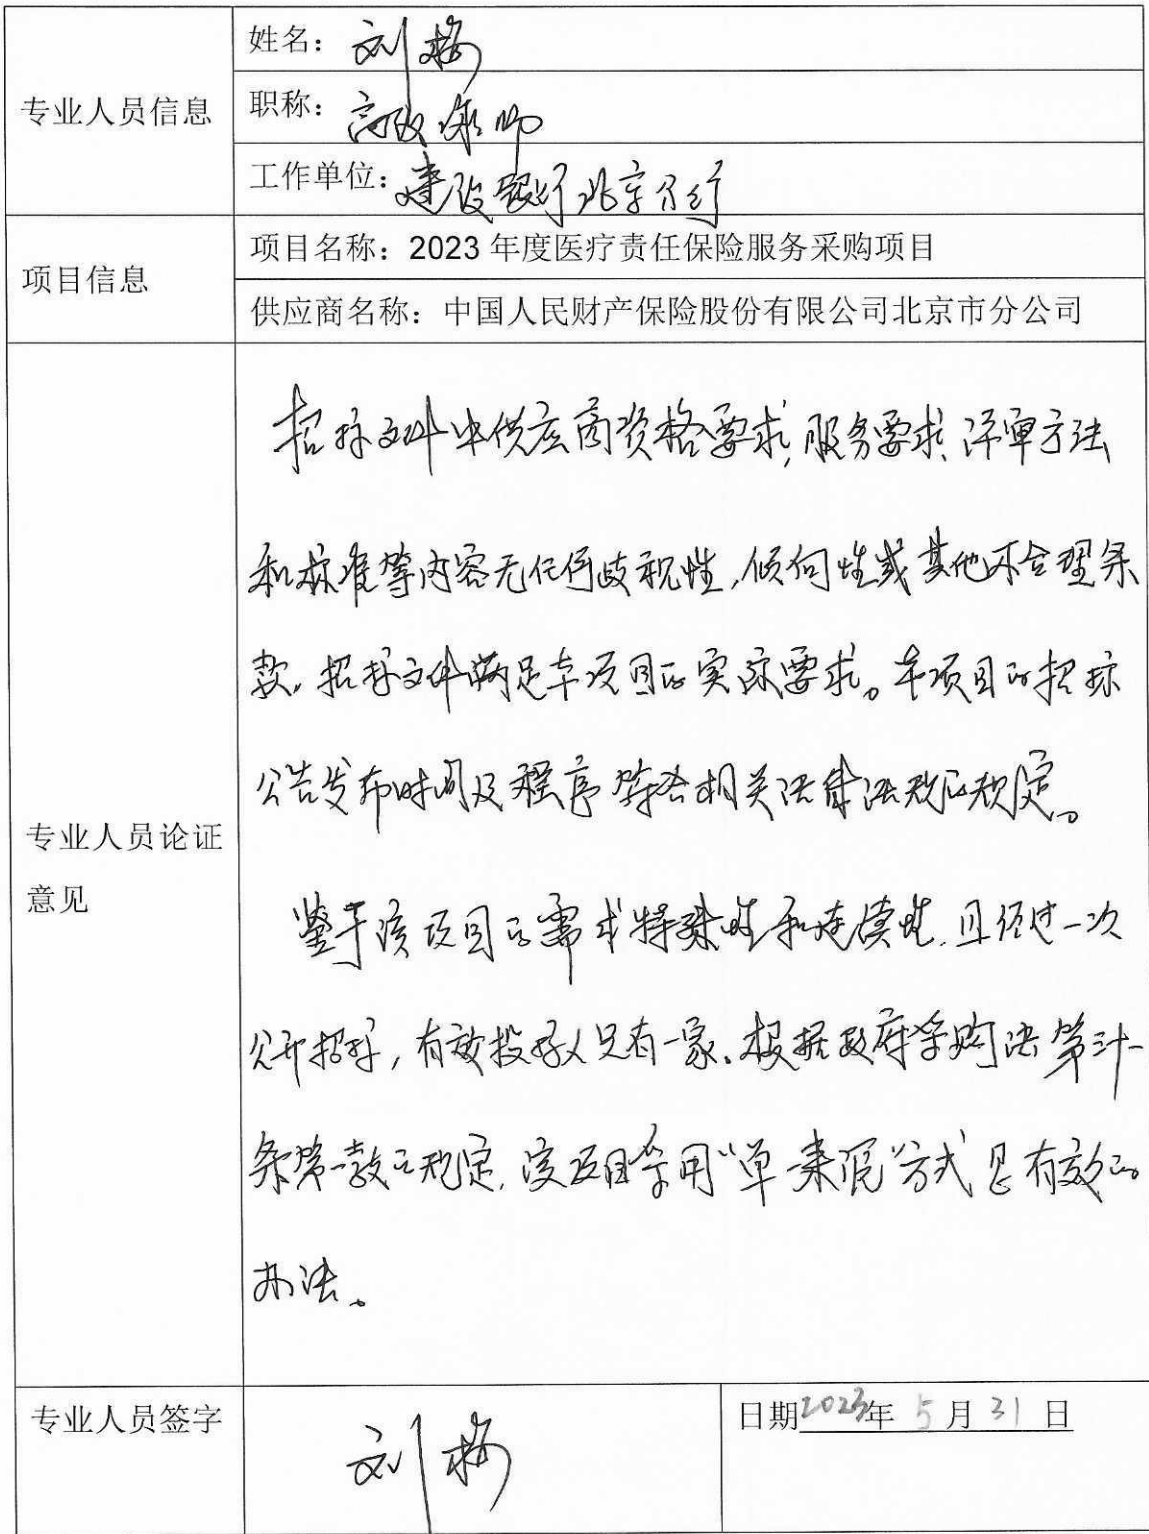 专业人员信息
姓名：刘梅
职称：高级
工作单位：建设银行北京分行
项目信息
项目名称：2023 年度医疗责任保险服务采购项目
供应商名称：中国人民财产保险股份有限公司北京市分公司
专业人员论证
意见
招标文件中供应商资格要求、服务要求、评审方法
和标准等内容无任何歧视性，倾向性或其他不合理条
款，招标文件满足本项目的实际要求。本项目的招标
公告发布时间及程序符合相关法律法规的规定。
鉴于该项目的需求特殊性和连续性，且经过一次
公开招标，有效投标人只有一家。根据政府采购法第三十一
条第一款之规定，该项目采用“单一来源”方式是有效的
办法。
专业人员签字
刘梅
日期2023年 5 月 31 日